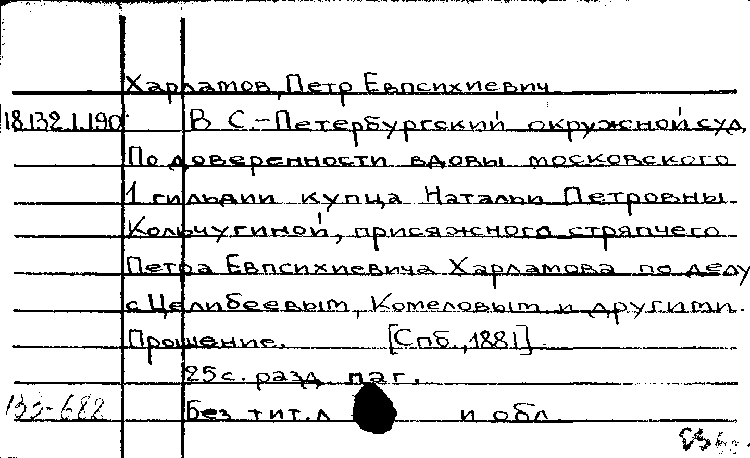 Харламов, Петр Евпсихиевич
18.132.1.190 В С.-Петербургский окружной суд
По доверенности вдовы московского
1 гильдии купца Натальи Петровны
Кольчугиной, присяжного стряпчего
Петра Евпсихиевича Харламова по делу
с Целибеевым, Комеловым и другими.
Прошение. [Спб., 1881]
25 с. разд. паг.
133-688 Без тит. л. и обл.